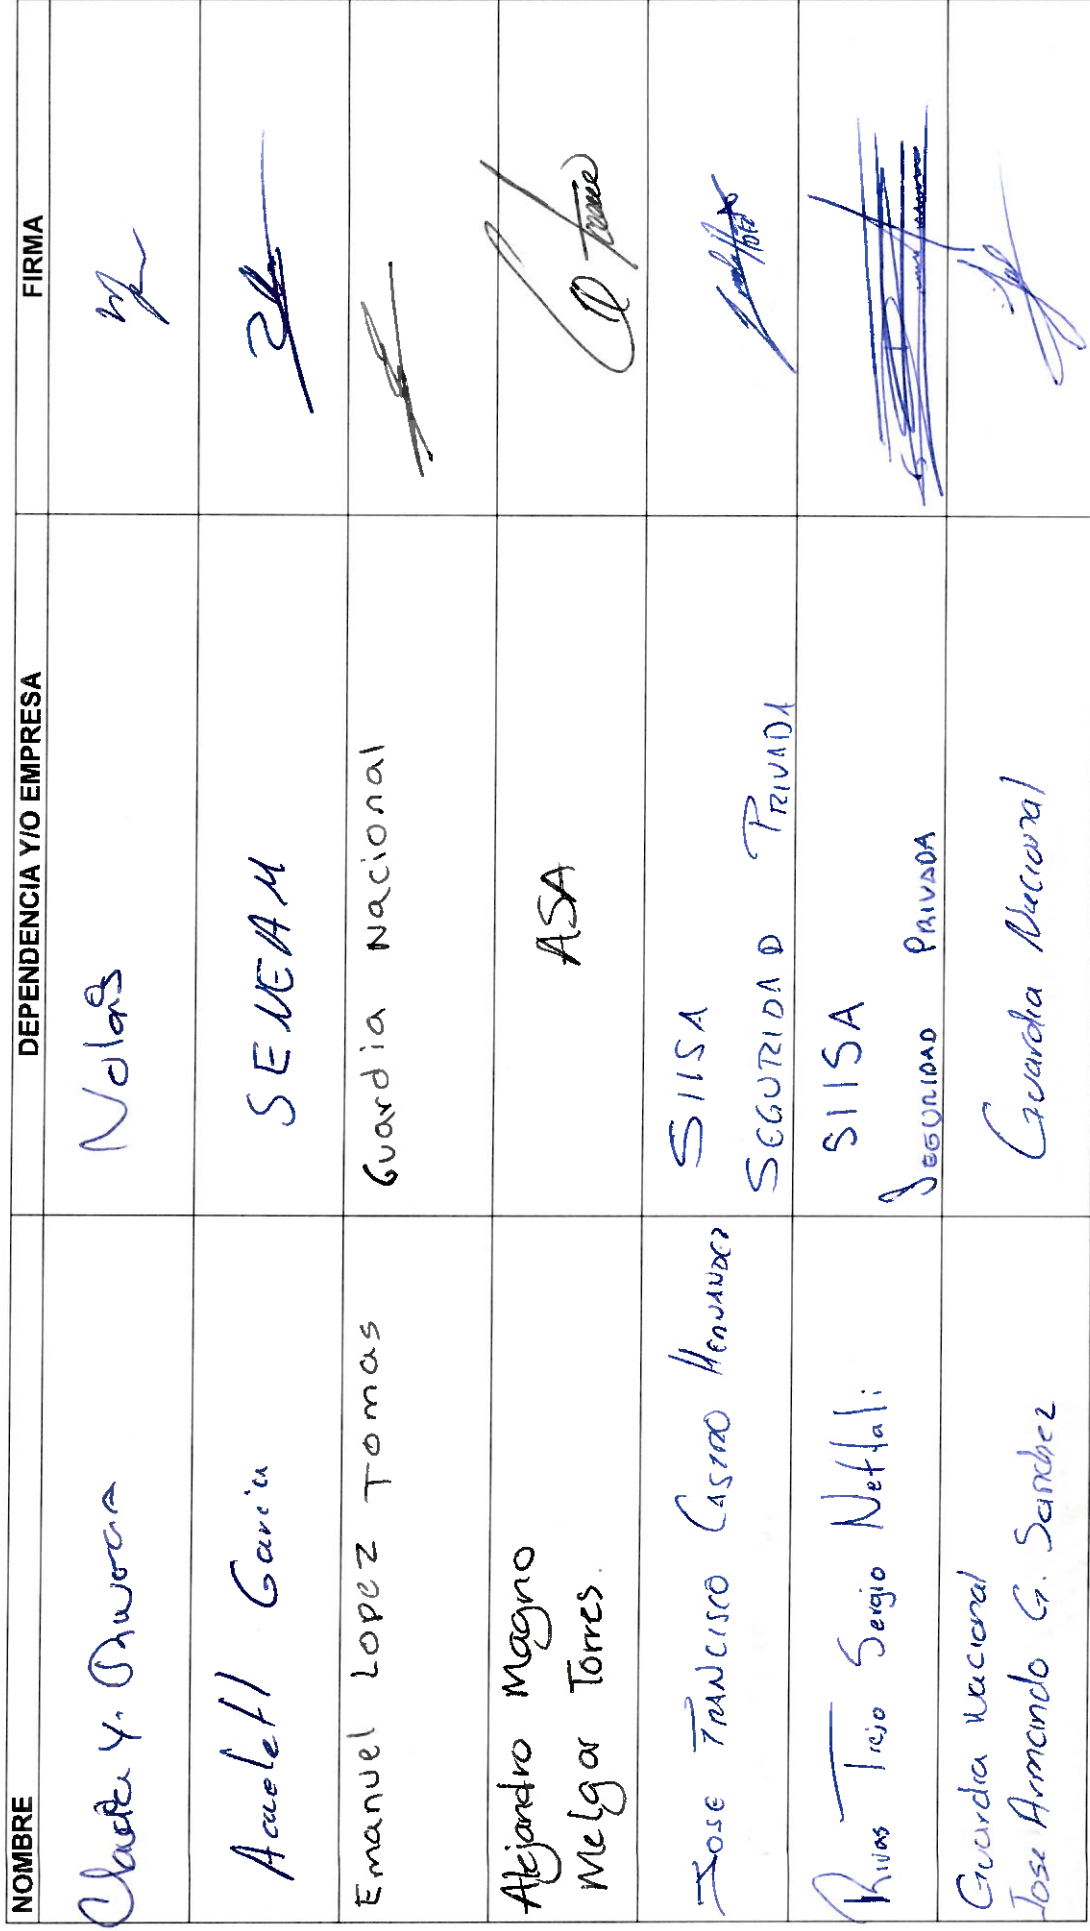 NOMBRE DEPENDENCIA Y/O EMPRESA FIRMA
Claudia Y. Volaris
Acaletl Garcia SENEAM
Emanuel Lopez Tomas Guardia Nacional
Alejandro Magno
Melgar Torres. ASA
JOSE FRANCISCO CASTRO HERNANDEZ SIISA
SEGURIDAD PRIVADA
Rivas Trejo Sergio Neftali SIISA
SEGURIDAD PRIVADA
Guardia Nacional
Jose Armando G. Sanchez Guardia Nacional